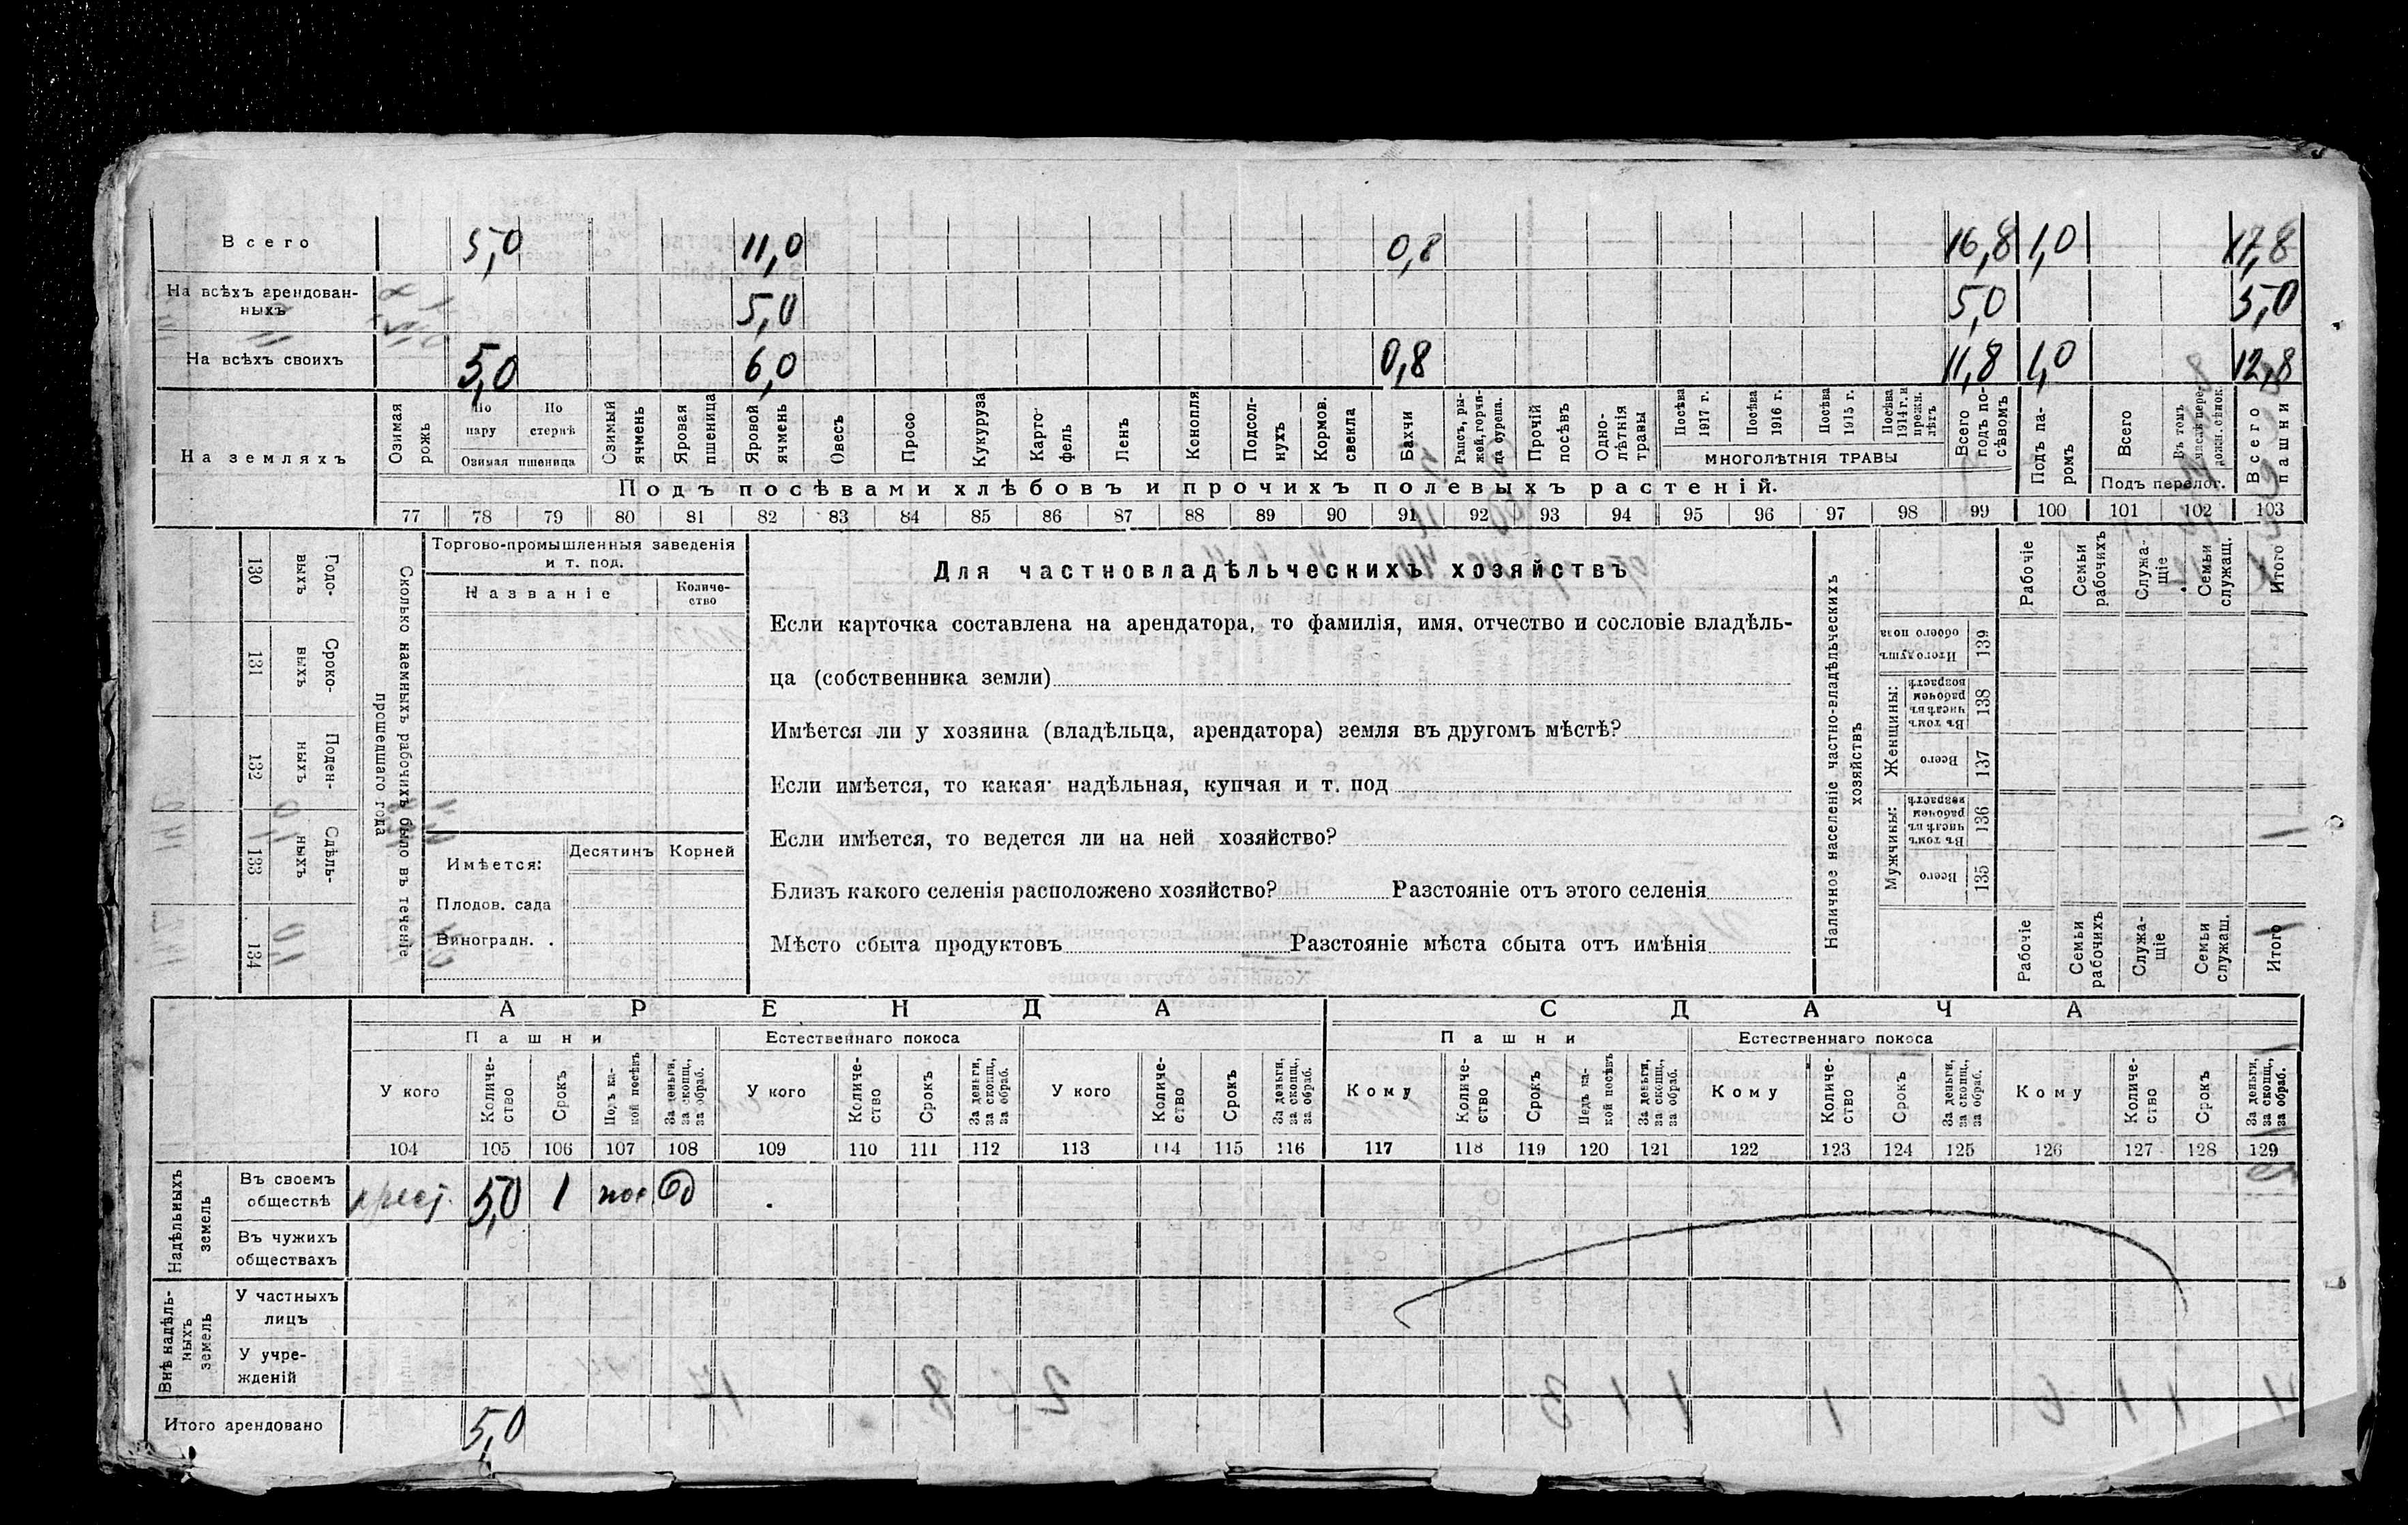 Всего 5,0 11,0 0,8 16,8 1,0 17,8
На всѣхъ арендован-
ныхъ 5,0 5,0 5,0
На всѣхъ своихъ 5,0 6,0 0,8 11,8 1,0 12,8
На земляхъ
Озимая рожь
По пару
По стернѣ
Озимая пшеница
Озимый ячмень
Яровая пшеница
Яровой ячмень
Овесъ
Просо
Кукуруза
Карто-
фель
Ленъ
Конопля
Подсол-
нухъ
Кормов. свекла
Бахчи
Рапсъ, ры-
жей, горчи-
ца сурепа.
Прочій посѣвъ
Одно-
лѣтнія травы
Посѣва 1917 г.
Посѣва 1916 г.
Посѣва 1915 г.
Посѣва 1914 г. и прежн. лѣтъ
МНОГОЛѢТНІЯ ТРАВЫ
Всего подъ по-
сѣвомъ
Подъ па-
ромъ
Всего
Въ томъ числѣ пере-
Подъ перелог.
Всего пашни
Подъ посѣвами хлѣбовъ и прочихъ полевыхъ растеній.
77 78 79 80 81 82 83 84 85 86 87 88 89 90 91 92 93 94 95 96 97 98 99 100 101 102 103
130 Годо-
выхъ
131 Сроко-
выхъ
132 Поден-
ныхъ
133 Сдѣль-
ныхъ
134
Сколько наемныхъ рабочихъ было въ теченіе
прошедшаго года
Торгово-промышленныя заведенія
и т. под.
Названіе
Количе-
ство
Имѣется:
Десятинъ Корней
Плодов. сада
Виноградн. .
Для частновладѣльческихъ хозяйствъ
Если карточка составлена на арендатора, то фамилія, имя, отчество и сословіе владѣль-
ца (собственника земли)
Имѣется ли у хозяина (владѣльца, арендатора) земля въ другомъ мѣстѣ?
Если имѣется, то какая: надѣльная, купчая и т. под
Если имѣется, то ведется ли на ней хозяйство?
Близъ какого селенія расположено хозяйство? Разстояніе отъ этого селенія
Мѣсто сбыта продуктовъ Разстояніе мѣста сбыта отъ имѣнія
Наличное населеніе частно-владѣльческихъ
хозяйствъ
Рабочіе
Семьи рабочихъ
Служа-
щіе
Семьи служащ.
Итого
Итого душъ обоего пола 139
Женщины:
Въ томъ числѣ въ рабочем возрастѣ 138
Всего 137
Мужчины:
Въ томъ числѣ въ рабочем возрастѣ 136
Всего 135
Рабочіе
Семьи рабочихъ
Служа-
щіе
Семьи служащ.
Итого
АРЕНДА СДАЧА
Пашни Естественнаго покоса Пашни Естественнаго покоса
У кого
Количе-
ство
Срокъ
Подъ ка-
кой посѣвъ
За деньги, за скопщ., за обраб.
У кого
Количе-
ство
Срокъ
За деньги, за скопщ., за обраб.
У кого
Количе-
ство
Срокъ
За деньги, за скопщ., за обраб.
Кому
Количе-
ство
Срокъ
Подъ ка-
кой посѣвъ
За деньги, за скопщ., за обраб.
Кому
Количе-
ство
Срокъ
За деньги, за скопщ., за обраб.
Кому
Количе-
ство
Срокъ
За деньги, за скопщ., за обраб.
104 105 106 107 108 109 110 111 112 113 114 115 116 117 118 119 120 121 122 123 124 125 126 127 128 129
Надѣльныхъ земель
Въ своемъ
обществѣ крест. 5,0 1 пос
Въ чужихъ
обществахъ
Внѣ надѣль-
ныхъ земель
У частныхъ
лицъ
У учре-
жденій
Итого арендовано 5,0